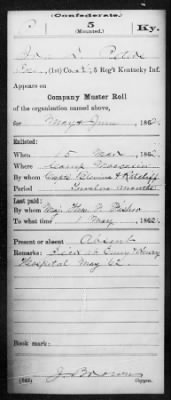 (Confederate.)
P 5 Ky.
(Mounted.)
(1st) Co. 5 Reg't Kentucky Inf.
Appears on
Company Muster Roll
of the organization named above,
for May & June, 1862.
Enlisted:
When 15 Mar, 1862.
Where Camp
By whom Capts
Period Twelve months
Last paid:
By whom Maj. Thos.
To what time 1 May, 1862.
Present or absent Absent
Remarks: Died at Emory & Henry
Hospital May 62
Book mark:
J. Brown
(642) Copyist.